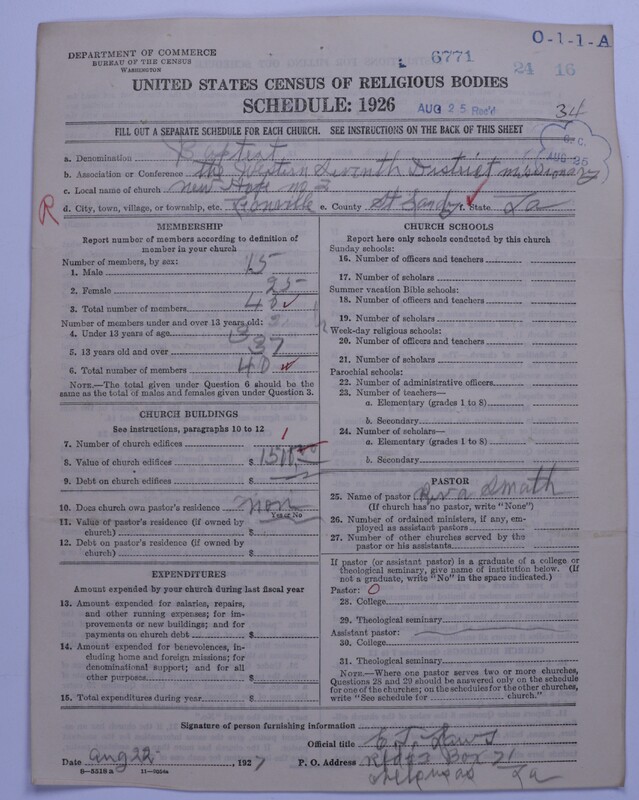 O-1-1-A
DEPARTMENT OF COMMERCE
BUREAU OF THE CENSUS
WASHINGTON
6771
24 16
UNITED STATES CENSUS OF RELIGIOUS BODIES
SCHEDULE: 1926
AUG 25 Rec'd
34
FILL OUT A SEPARATE SCHEDULE FOR EACH CHURCH. SEE INSTRUCTIONS ON THE BACK OF THIS SHEET
AUG 25
a. Denomination Baptist
b. Association or Conference the Western Seventh District missionary
c. Local name of church new Hope no 2
R
d. City, town, village, or township, etc. Leonville e. County St Landry f. State La
MEMBERSHIP
Report number of members according to definition of
member in your church
Number of members, by sex:
1. Male 15
2. Female 25
3. Total number of members 40
Number of members under and over 13 years old:
4. Under 13 years of age 3
5. 13 years old and over 37
6. Total number of members 40
NOTE.—The total given under Question 6 should be
same as the total of males and females given under Question 3.
CHURCH BUILDINGS
See instructions, paragraphs 10 to 12
7. Number of church edifices 1
8. Value of church edifices $
9. Debt on church edifices $
10. Does church own pastor's residence non
Yes or No
11. Value of pastor's residence (if owned by
church) $
12. Debt on pastor's residence (if owned by
church) $
EXPENDITURES
Amount expended by your church during last fiscal year
13. Amount expended for salaries, repairs,
and other running expenses; for im-
provements or new buildings; and for
payments on church debt $
14. Amount expended for benevolences, in-
cluding home and foreign missions; for
denominational support; and for all
other purposes $
15. Total expenditures during year $
CHURCH SCHOOLS
Report here only schools conducted by this church
Sunday schools:
16. Number of officers and teachers
17. Number of scholars
Summer vacation Bible schools:
18. Number of officers and teachers
19. Number of scholars
Week-day religious schools:
20. Number of officers and teachers
21. Number of scholars
Parochial schools:
22. Number of administrative officers
23. Number of teachers—
a. Elementary (grades 1 to 8)
b. Secondary
24. Number of scholars—
a. Elementary (grades 1 to 8)
b. Secondary
PASTOR
25. Name of pastor Rev a Smath
(If church has no pastor, write "None")
26. Number of ordained ministers, if any, em-
ployed as assistant pastors
27. Number of other churches served by the
pastor or his assistants
If pastor (or assistant pastor) is a graduate of a college or
theological seminary, give name of institution below. (If
not a graduate, write "No" in the space indicated.)
Pastor: O
28. College
29. Theological seminary
Assistant pastor:
30. College
31. Theological seminary
NOTE.—Where one pastor serves two or more churches,
Questions 28 and 29 should be answered only on the schedule
for one of the churches; on the schedules for the other churches,
write "See schedule for church."
Signature of person furnishing information
Official title
Date aug 22, 1927 P. O. Address Box 71
La
8-5518 a